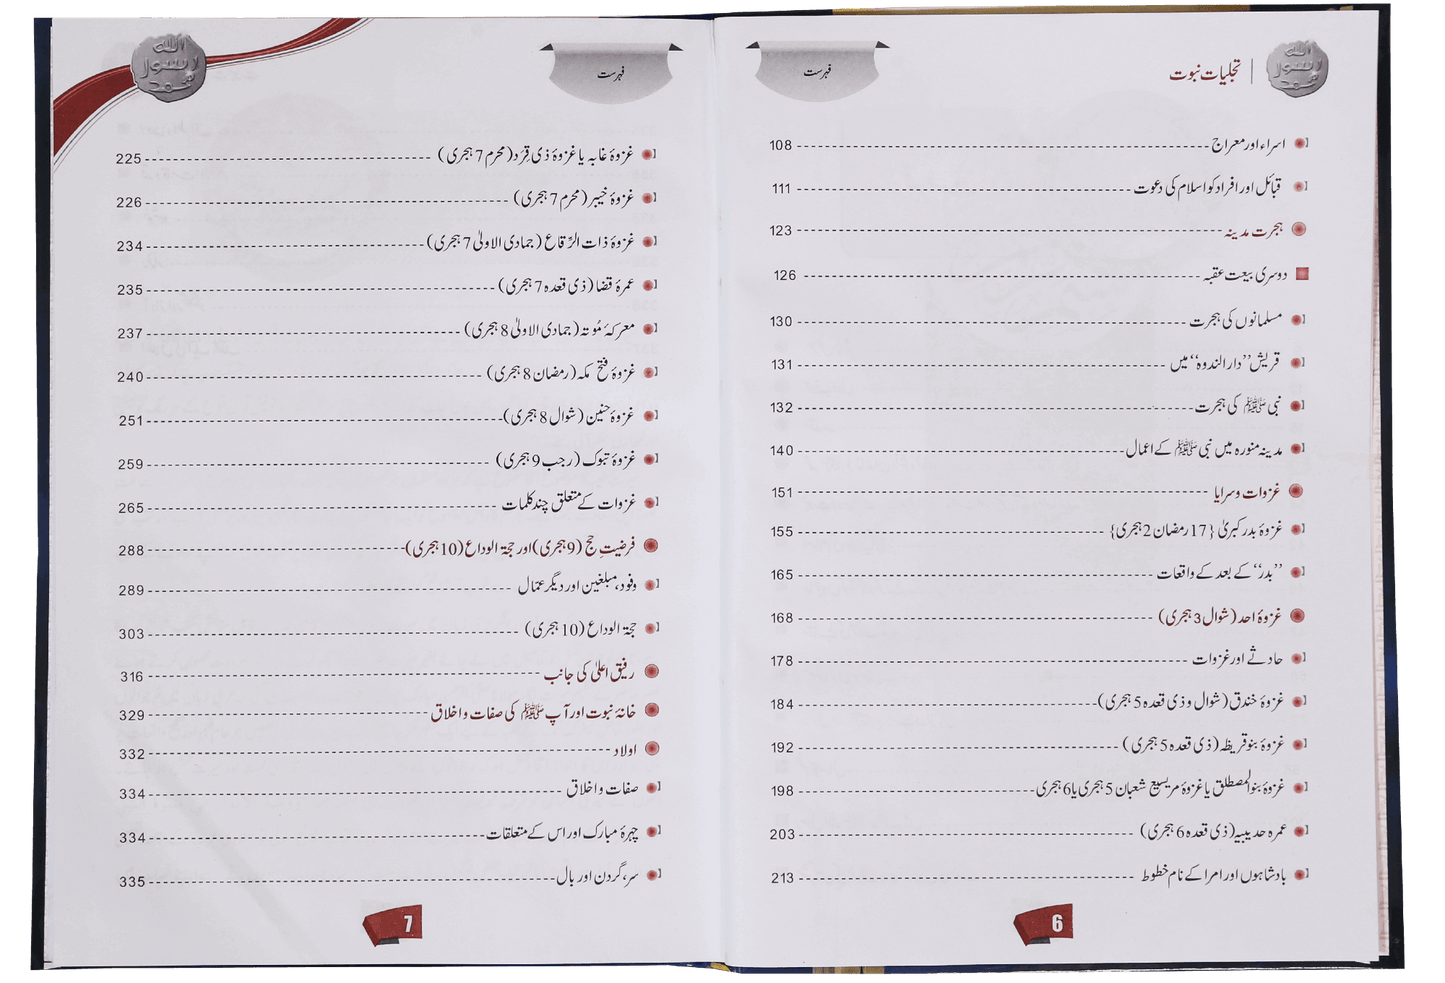 الله
رسول
محمد
تجلیات نبوت
فہرست
اسراء اور معراج 108
قبائل اور افراد کو اسلام کی دعوت 111
ہجرت مدینہ 123
دوسری بیعت عقبہ 126
مسلمانوں کی ہجرت 130
قریش ”دارالندوہ“ میں 131
نبی ﷺ کی ہجرت 132
مدینہ منورہ میں نبی ﷺ کے اعمال 140
غزوات و سرایا 151
غزوۂ بدر کبریٰ {17 رمضان 2 ہجری} 155
”بدر“ کے بعد کے واقعات 165
غزوۂ احد (شوال 3 ہجری) 168
حادثے اور غزوات 178
غزوۂ خندق (شوال و ذی قعدہ 5 ہجری) 184
غزوۂ بنو قریظہ (ذی قعدہ 5 ہجری) 192
غزوۂ بنو المصطلق یا غزوۂ مریسیع شعبان 5 ہجری یا 6 ہجری 198
عمرہ حدیبیہ (ذی قعدہ 6 ہجری) 203
بادشاہوں اور امرا کے نام خطوط 213
6
الله
رسول
محمد
فہرست
غزوۂ غابہ یا غزوۂ ذی قِرَد (محرم 7 ہجری) 225
غزوۂ خیبر (محرم 7 ہجری) 226
غزوۂ ذات الرِّقاع (جمادی الاولیٰ 7 ہجری) 234
عمرۂ قضا (ذی قعدہ 7 ہجری) 235
معرکۂ مُوتہ (جمادی الاولیٰ 8 ہجری) 237
غزوۂ فتح مکہ (رمضان 8 ہجری) 240
غزوۂ حنین (شوال 8 ہجری) 251
غزوۂ تبوک (رجب 9 ہجری) 259
غزوات کے متعلق چند کلمات 265
فرضیتِ حج (9 ہجری) اور حجۃ الوداع (10 ہجری) 288
وفود، مبلغین اور دیگر عمّال 289
حجۃ الوداع (10 ہجری) 303
رفیق اعلیٰ کی جانب 316
خانۂ نبوت اور آپ ﷺ کی صفات و اخلاق 329
اولاد 332
صفات و اخلاق 334
چہرۂ مبارک اور اس کے متعلقات 334
سر، گردن اور بال 335
7